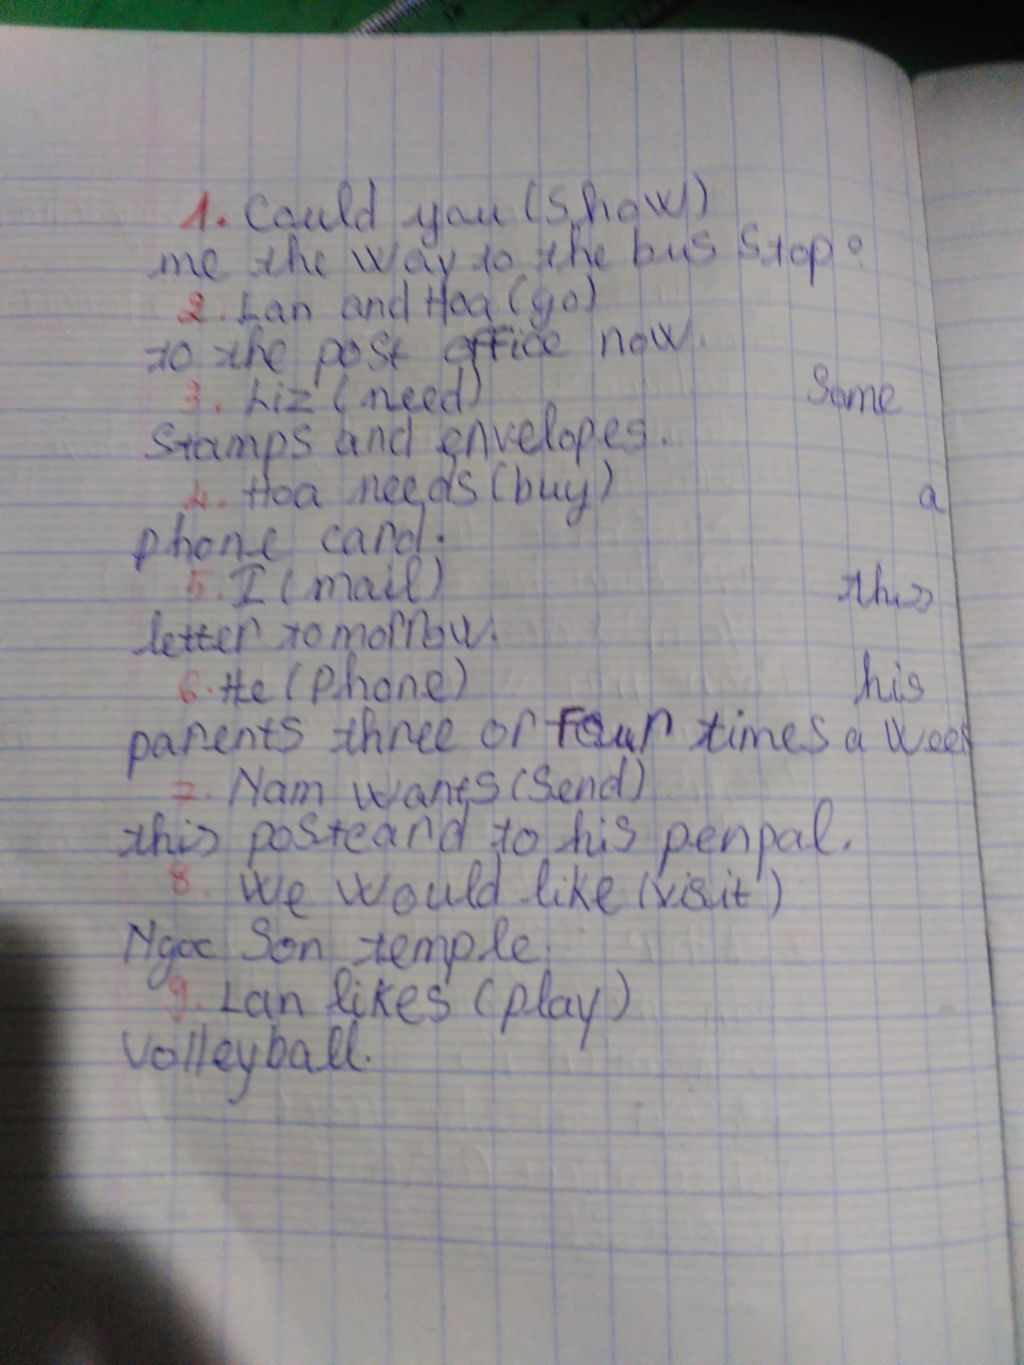 1. Could you (show)
me the way to the bus stop?
2. Lan and Hoa (go)
to the post office now.
3. Liz (need) some
stamps and envelopes.
4. Hoa needs (buy) a
phone card.
5. I (mail) this
letter tomorrow.
6. He (phone) his
parents three or four times a week
7. Nam wants (send)
this postcard to his penpal.
8. We would like (visit)
Ngoc Son temple.
9. Lan likes (play)
volleyball.